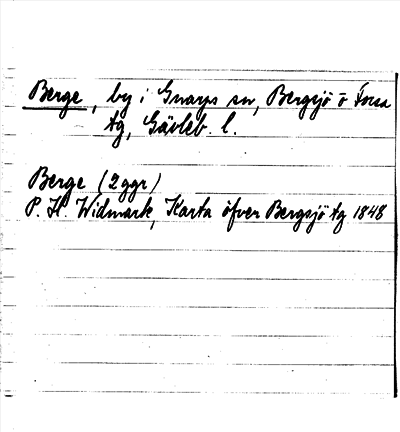 Berge, by i Gnarps sn, Bergsjö o Forsa
tg, Gävleb. l.
Berge (2 ggr)
P. H. Widmark, Karta öfver Bergsjö tg 1848